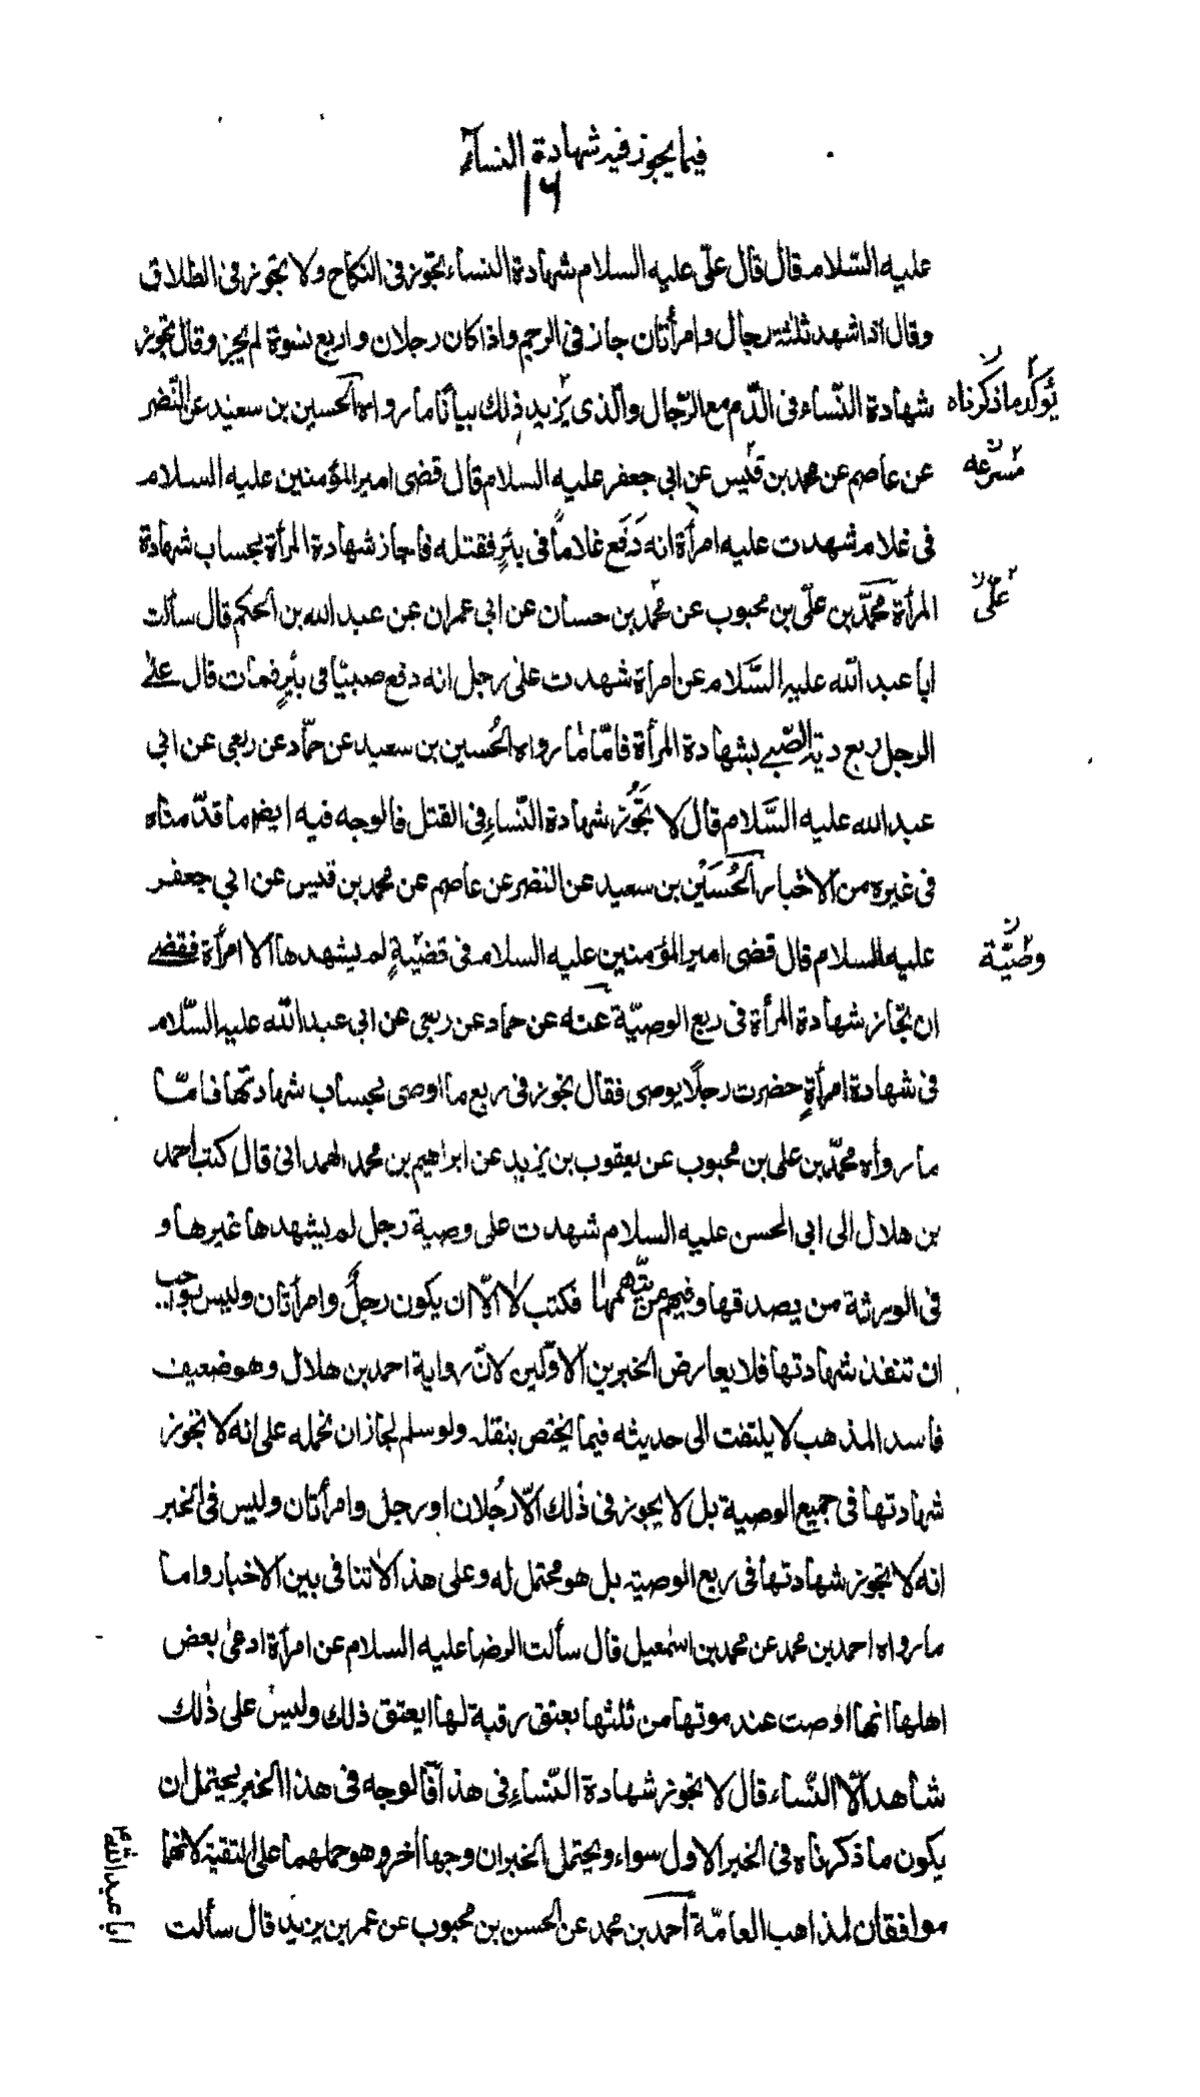 فيما يجوز فيه شهادة النساء
١٦
عليه السّلام قال قال علّى عليه السلام شهادة النساء تجوّز فى النكاح ولا تجوز فى الطلاق
وقال اذا شهد ثلثة رجال وامرأتان جاز فى الرجم واذا كان رجلان واربع نسوة لم يجز وقال تجوز
شهادة النّساء فى الدّم مع الرّجال والّذى يزيد ذلك بيانًا ما رواه الحسين بن سعيد عن النّضر
يؤكّد ما ذكرناه
عن عاصم عن محمد بن قيس عن ابى جعفر عليه السلام قال قضى امير المؤمنين عليه السلام
فى غلام شهدت عليه امرأة انه دَفَع غلامًا فى بئرٍ فقتله فاجاز شهادة المرأة بحساب شهادة
المرأة محمّد بن علّى بن محبوب عن محمّد بن حسان عن ابى عمران عن عبد الله بن الحكم قال سألت
على
ابا عبد الله عليه السَّلام عن امرأة شهدت على رجل انه دفع صبيّا فى بئرٍ فمات قال على
الرجل ربع دية الصّبي بشهادة المرأة فامّا ما رواه الحُسين بن سعيد عن حمّاد عن ربعى عن ابى
عبد الله عليه السَّلام قال لا تَجُوز شهادة النّساءِ فى القتل فالوجه فيه ايضا ما قدّمناه
فى غيره من الاخبار الحُسَيْن بن سعيد عن النضر عن عاصم عن محمد بن قيس عن ابى جعفر
عليه السلام قال قضى امير المؤمنين عليه السلام فى قضيّةٍ لم يشهدها الا امرأة فقضى
وصيّة
ان تجّاز شهادة المرأة فى ربع الوصيّة عنه عن حماد عن ربعى عن ابى عبد الله عليه السّلام
فى شهادة امرأةٍ حضرت رجلًا يوصى فقال يجوز فى ربع ما اوصى بحساب شهادتها فامّا
ما رواه محمّد بن على بن محبوب عن يعقوب بن يزيد عن ابراهيم بن محمد الهمدانى قال كتب احمد
بن هلال الى ابى الحسن عليه السلام شهدت على وصية رجل لم يشهدها غيرها و
فى الورثة من يصدقها وفيهم من يتّهمها فكتب لا الّا ان يكون رجلٌ وامرأتان وليس بواجب
ان تنفذ شهادتها فلا يعارض الخبرين الاوّلين لانّ رواية احمد بن هلال وهو ضعيف
فاسد المذهب لا يلتفت الى حديثه فيما يختص بنقله ولو سلم لجاز ان نحمله على انه لا تجوز
شهادتها فى جميع الوصية بل لا يجوز فى ذٰلك الّا رجُلان او رجل وامرأتان وليس فى الخبر
انه لا تجوز شهادتها فى ربع الوصيّة بل هو محتمل له وعلى هذا لا تنافى بين الاخبار واما
ما رواه احمد بن محمد عن محمد بن اسمٰعيل قال سألت الرضا عليه السلام عن امرأة ادعى بعض
اهلها انها اوصت عند موتها من ثلثها بعتق رقبة لها ايعتق ذلك وليس على ذٰلك
شاهد الّا النّساء قال لا تجوز شهادة النّساءِ فى هذا فالوجه فى هذا الخبر يحتمل ان
يكون ما ذكرناه فى الخبر الاول سواء ويحتمل الخبران وجها اخر وهو حملهما على التقية لانهما
موافقان لمذاهب العامّة احمد بن محمد عن الحسن بن محبوب عن عمر بن يزيد قال سألت
ابا عبد الله ع